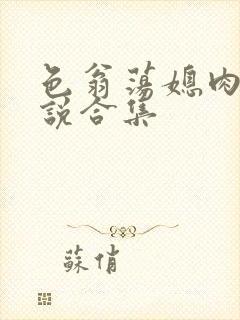 色翁荡媳肉
説合集
蘇俏